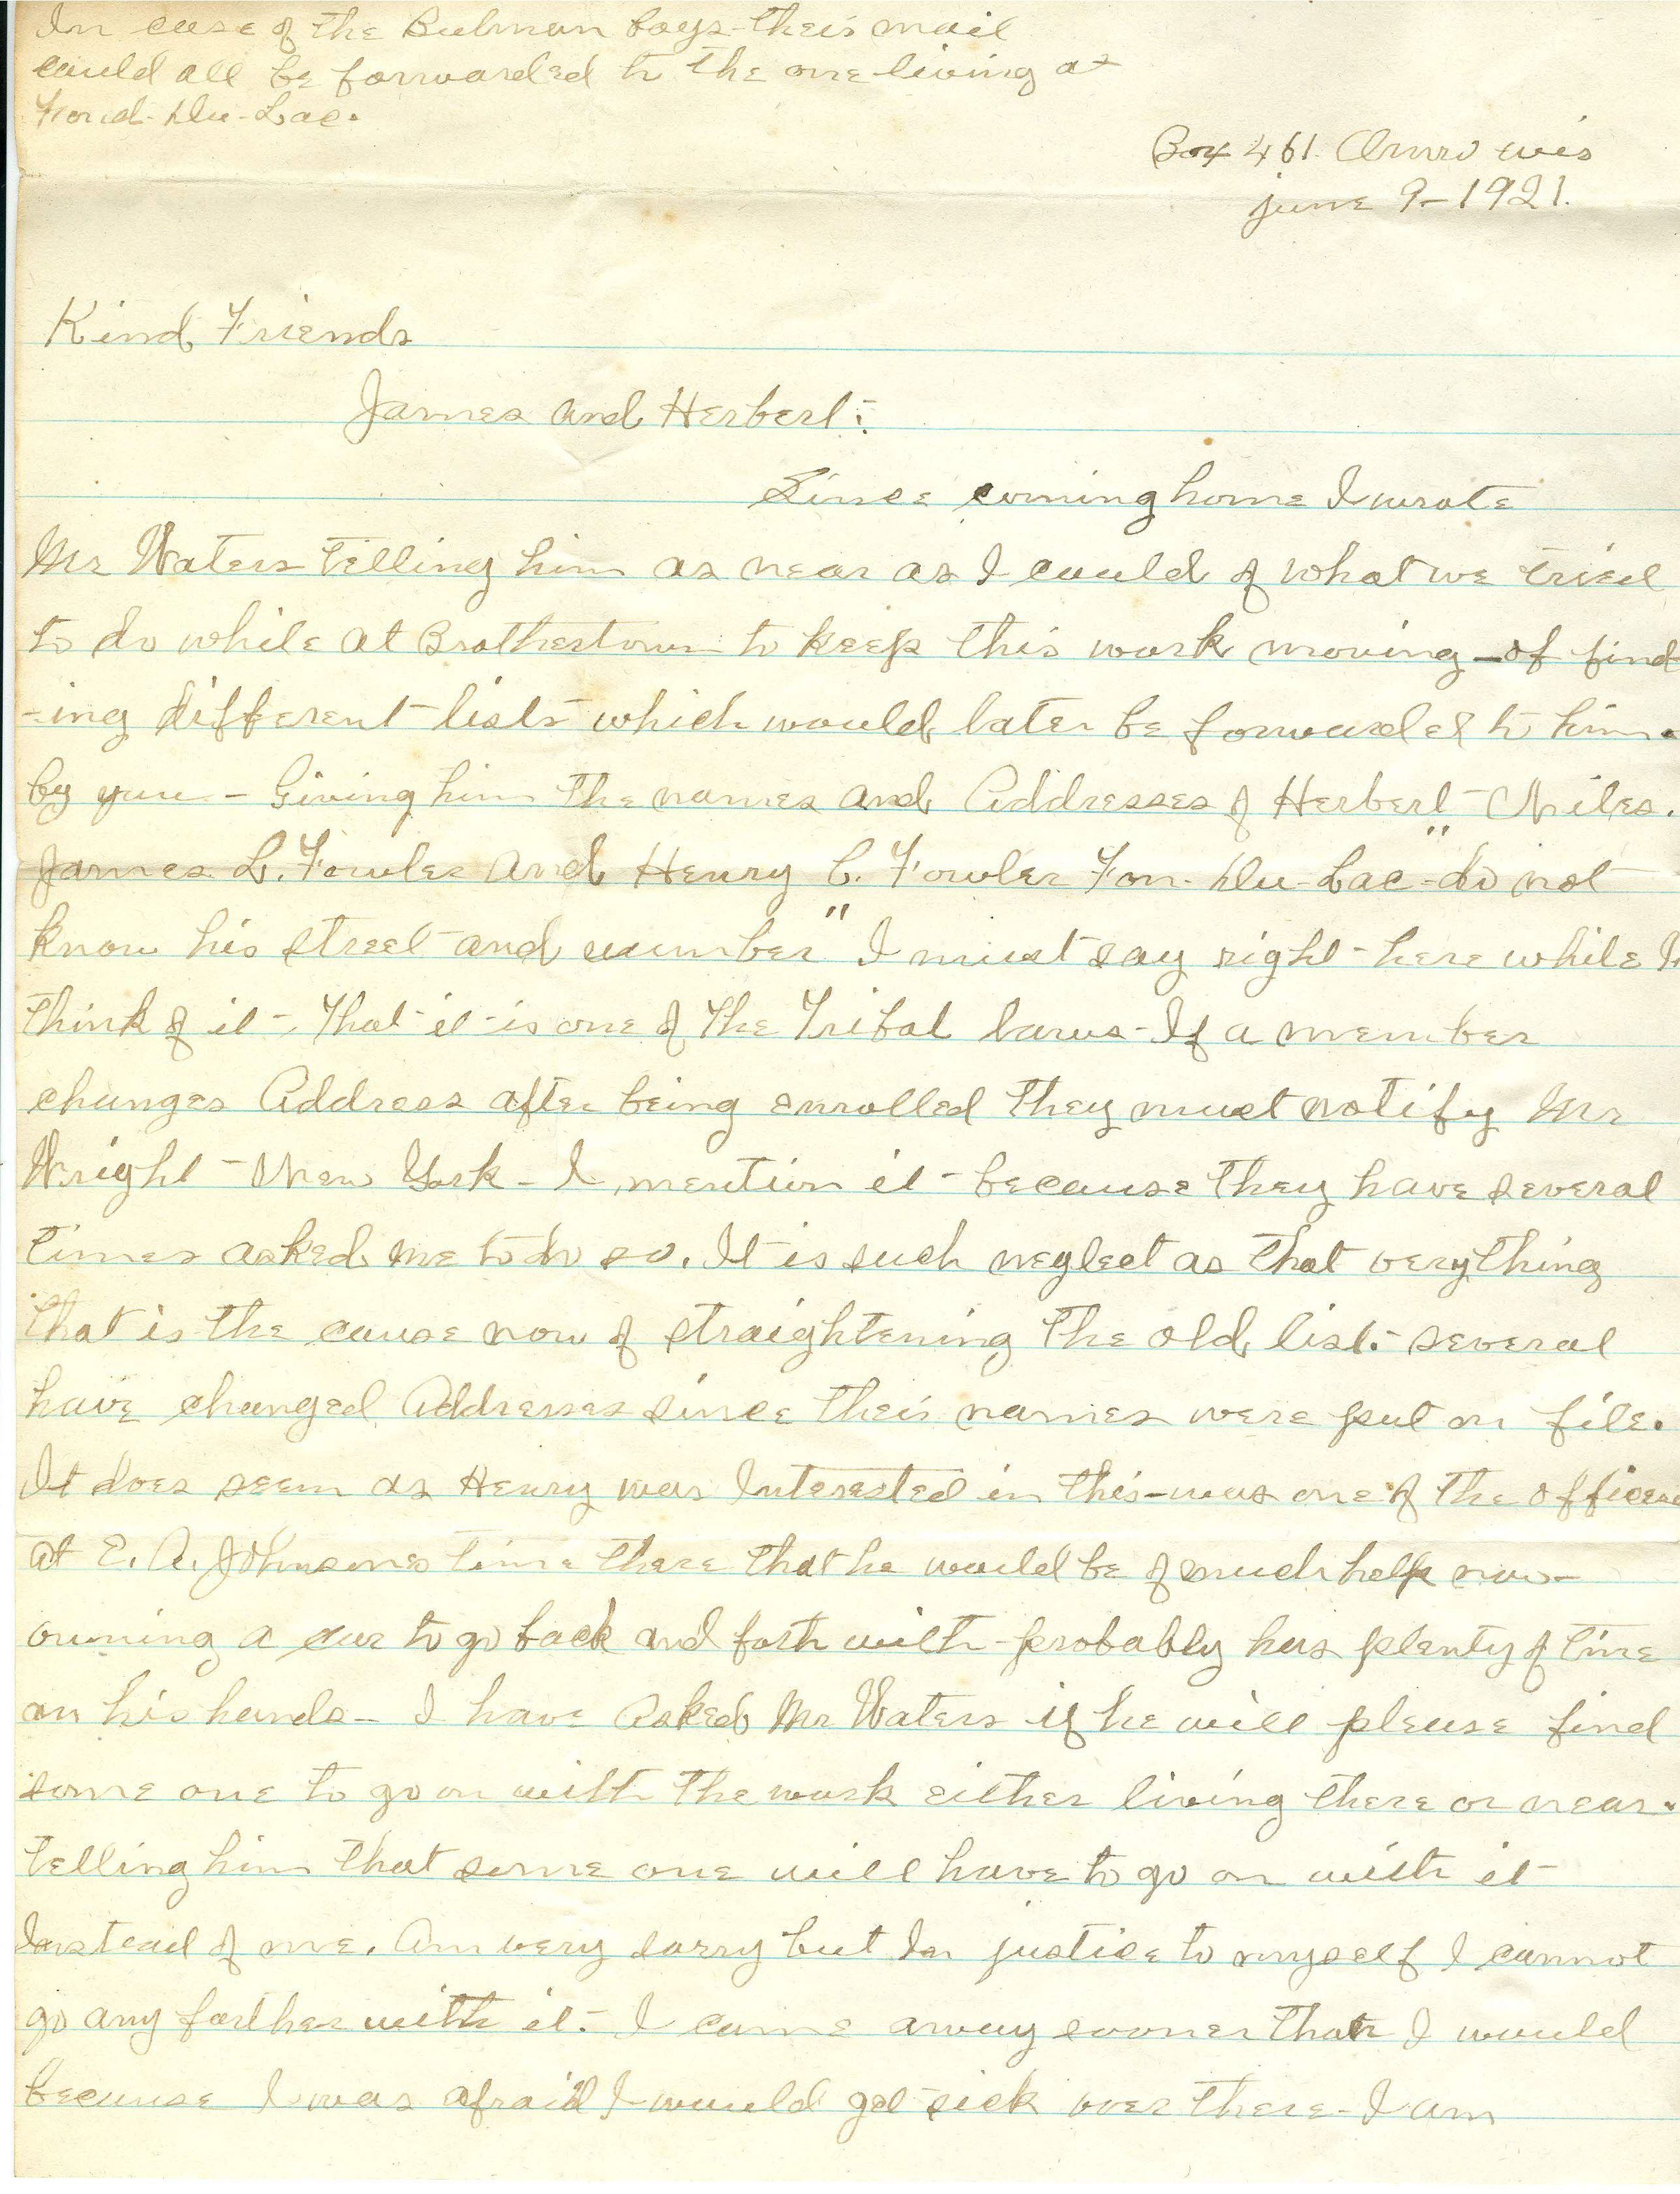 In case of the Bulman boys - their mail
could all be forwarded to the one living at
Fond-du-Lac.
Box 461. Omro wis
june 9-1921.
Kind Friends
James and Herbert:
Since coming home I wrote
Mr Waters telling him as near as I could of what we tried
to do while at Brothertown to keep this work moving - of find
-ing different lists which would later be forwarded to him.
by you - Giving him the names and Addresses of Herbert Niles.
James L. Fowler and Henry C. Fowler Fon-du-Lac "do not
know his street and number" I must say right here while I
think of it - that it is one of the Tribal laws - If a member
changes Address after being enrolled they must notify Mr
Wright - New York - I mention it - because they have several
times asked me to do so. It is such neglect as that very thing
that is the cause now of straightening the old list. - several
have changed Addresses since their names were put on file.
It does seem as Henry was Interested in this - was one of the officers
at E. A. Johnsons time there that he would be of much help now -
owning a car to go back and forth with - probably has plenty of time
on his hands - I have Asked Mr Waters if he will please find
some one to go on with the work either living there or near.
telling him that some one will have to go on with it
Instead of me. Am very sorry but In justice to myself I cannot
go any farther with it. - I came away sooner than I would
because I was afraid I would get sick over there - I am